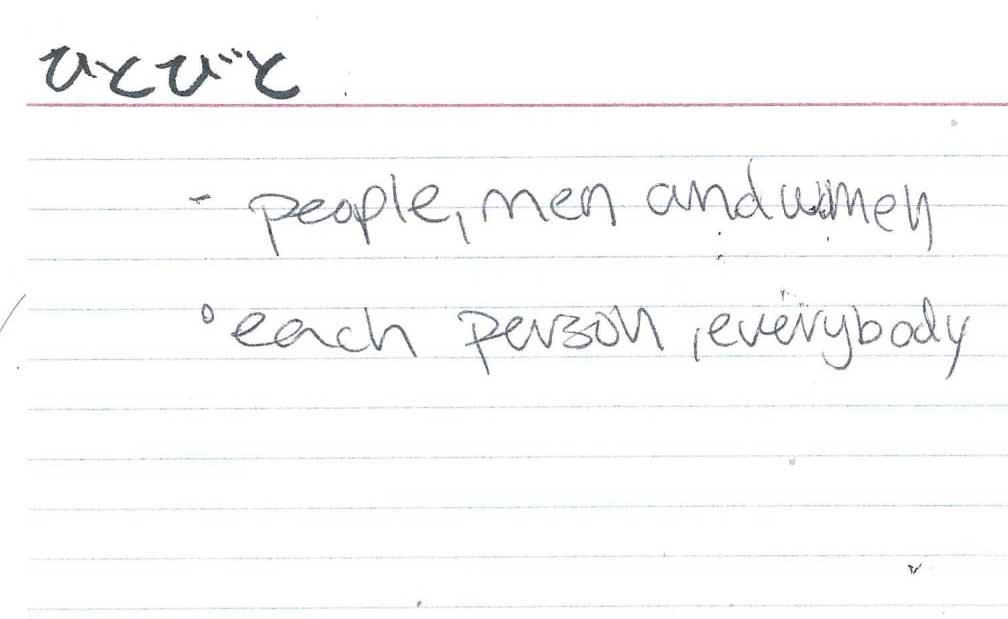 ひとびと
- people, men and women
° each person, everybody